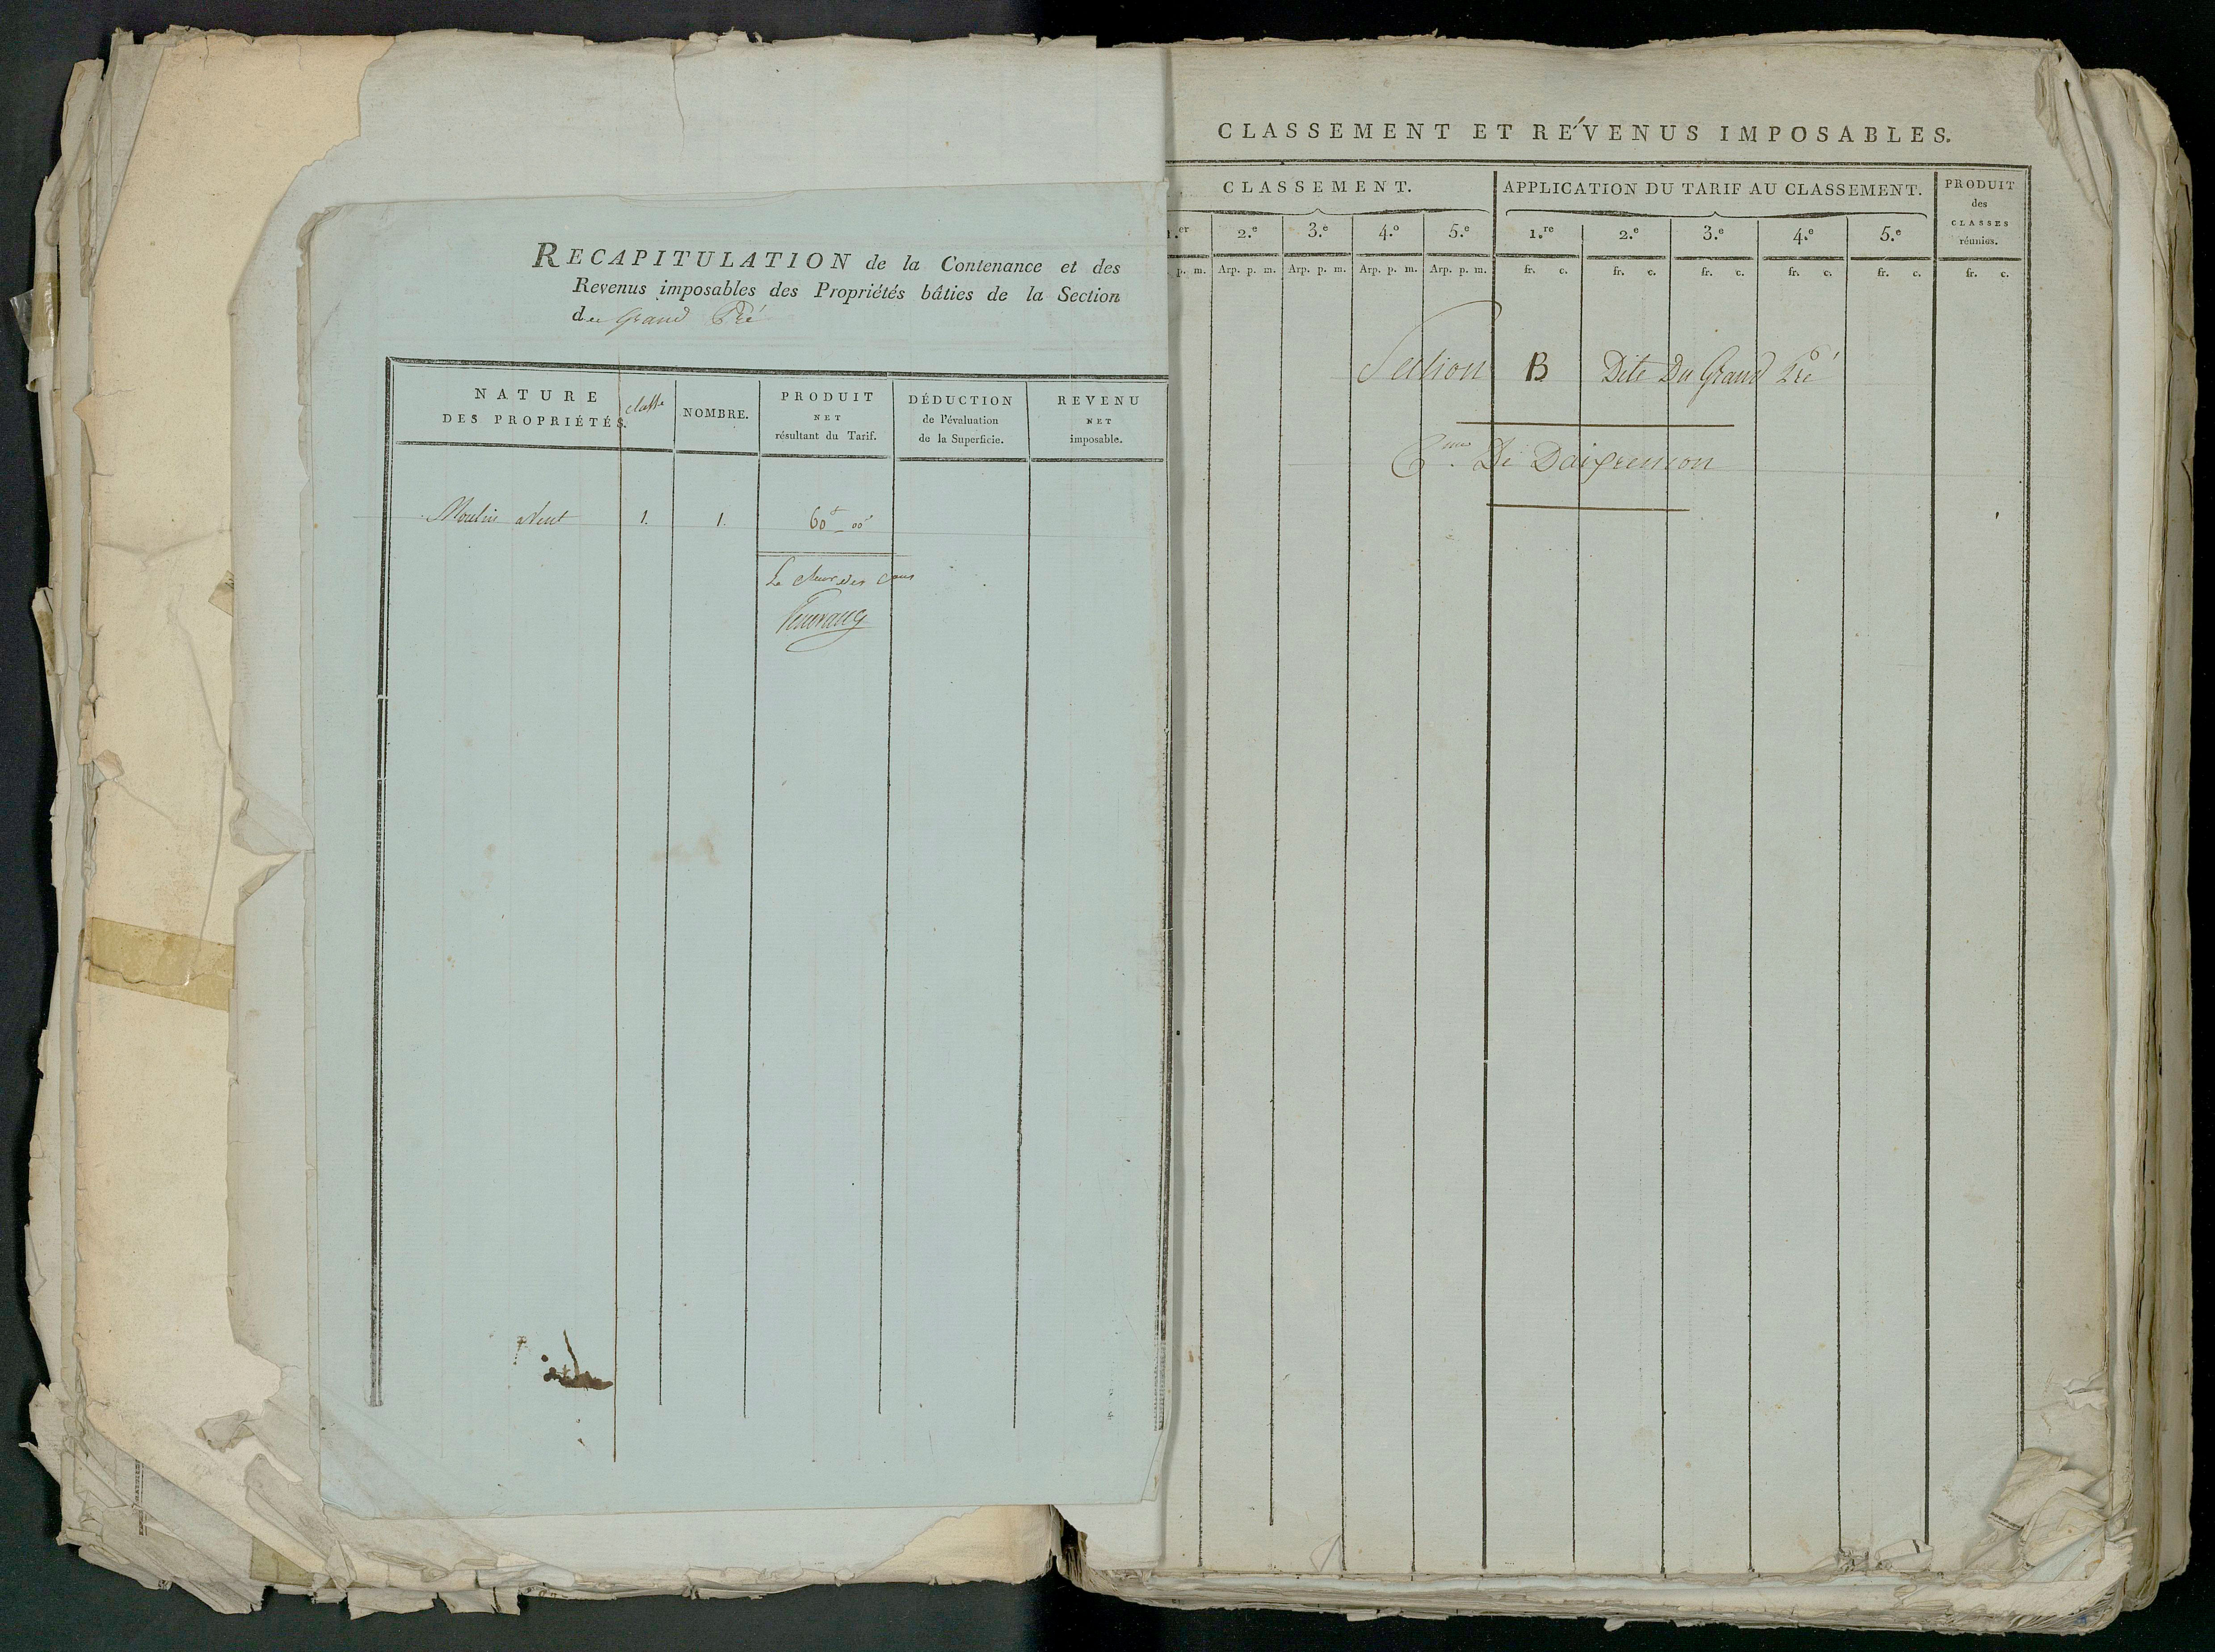 RECAPITULATION de la Contenance et des
Revenus imposables des Propriétés bâties de la Section
du Grand Pré
NATURE
DES PROPRIÉTÉS.
classe
NOMBRE.
PRODUIT
NET
résultant du Tarif.
DÉDUCTION
de l'évaluation
de la Superficie.
REVENU
NET
imposable.
Moulin avent 1. 1. 60 f 00 c
CLASSEMENT ET RÉVENUS IMPOSABLES.
CLASSEMENT.
APPLICATION DU TARIF AU CLASSEMENT.
PRODUIT
des
CLASSES
réunies.
1.er 2.e 3.e 4.e 5.e 1.re 2.e 3.e 4.e 5.e
p. m. Arp. p. m. Arp. p. m. Arp. p. m. Arp. p. m. fr. c. fr. c. fr. c. fr. c. fr. c. fr. c.
Section B Dite Du Grand Pré
C.ne De